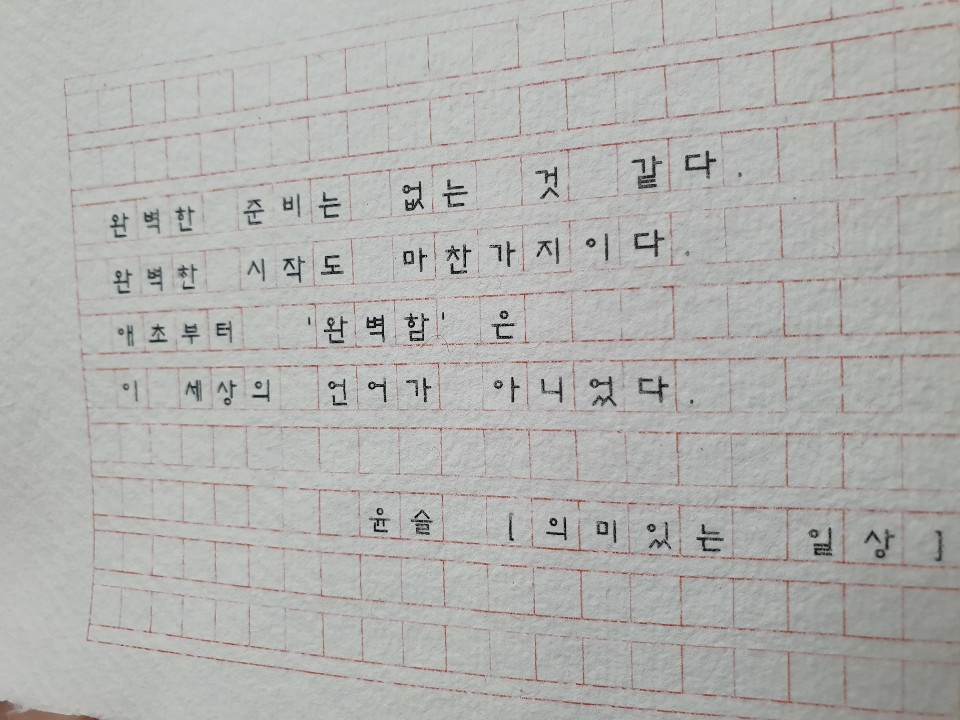 완벽한 준비는 없는 것 같다.
완벽한 시작도 마찬가지이다.
애초부터 '완벽함' 은
이 세상의 언어가 아니었다.
윤슬 [ 의미있는 일상 ]